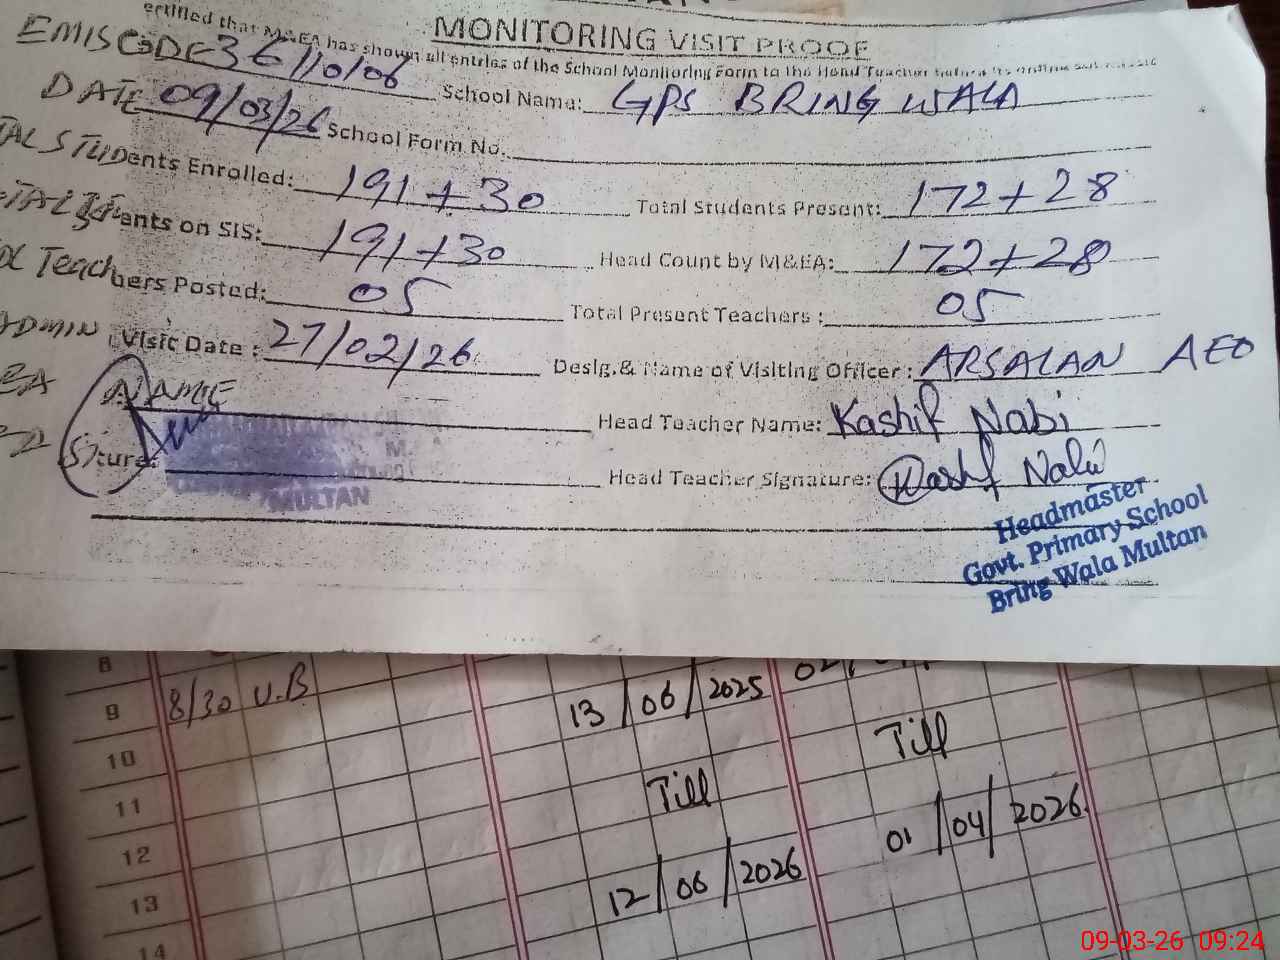 MONITORING VISIT PROOF
ertified that M&EA has shown all entries of the School Monitoring Form to the Head Teacher before its online
EMIS CODE 36110106 School Name: GPS BRING WALA
DATE 09/03/26 School Form No.
TAL STUDents Enrolled: 191+30 Total Students Present: 172+28
ents on SIS: 191+30 Head Count by M&EA: 172+28
Teachers Posted: 05 Total Present Teachers: 05
ADMIN Visit Date: 27/02/26 Desig.& Name of Visiting Officer: ARSALAN AEO
EA NAME Head Teacher Name: Kashif Nabi
Head Teacher Signature: Kashif Nabi
MULTAN
Headmaster
Govt. Primary School
Bring Wala Multan
8
9 8/30 U.B 13/06/2025
10 Till
11 Till
12 01/04/2026
13 12/06/2026
14
09-03-26 09:24